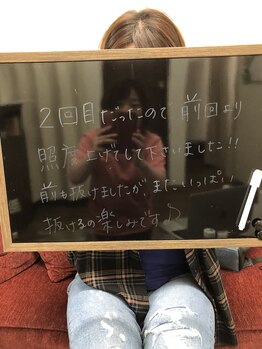 2回目だったので前回より
照度上げてして下さいました!!
前も抜けましたがまたいっぱい
抜けるの楽しみです♪